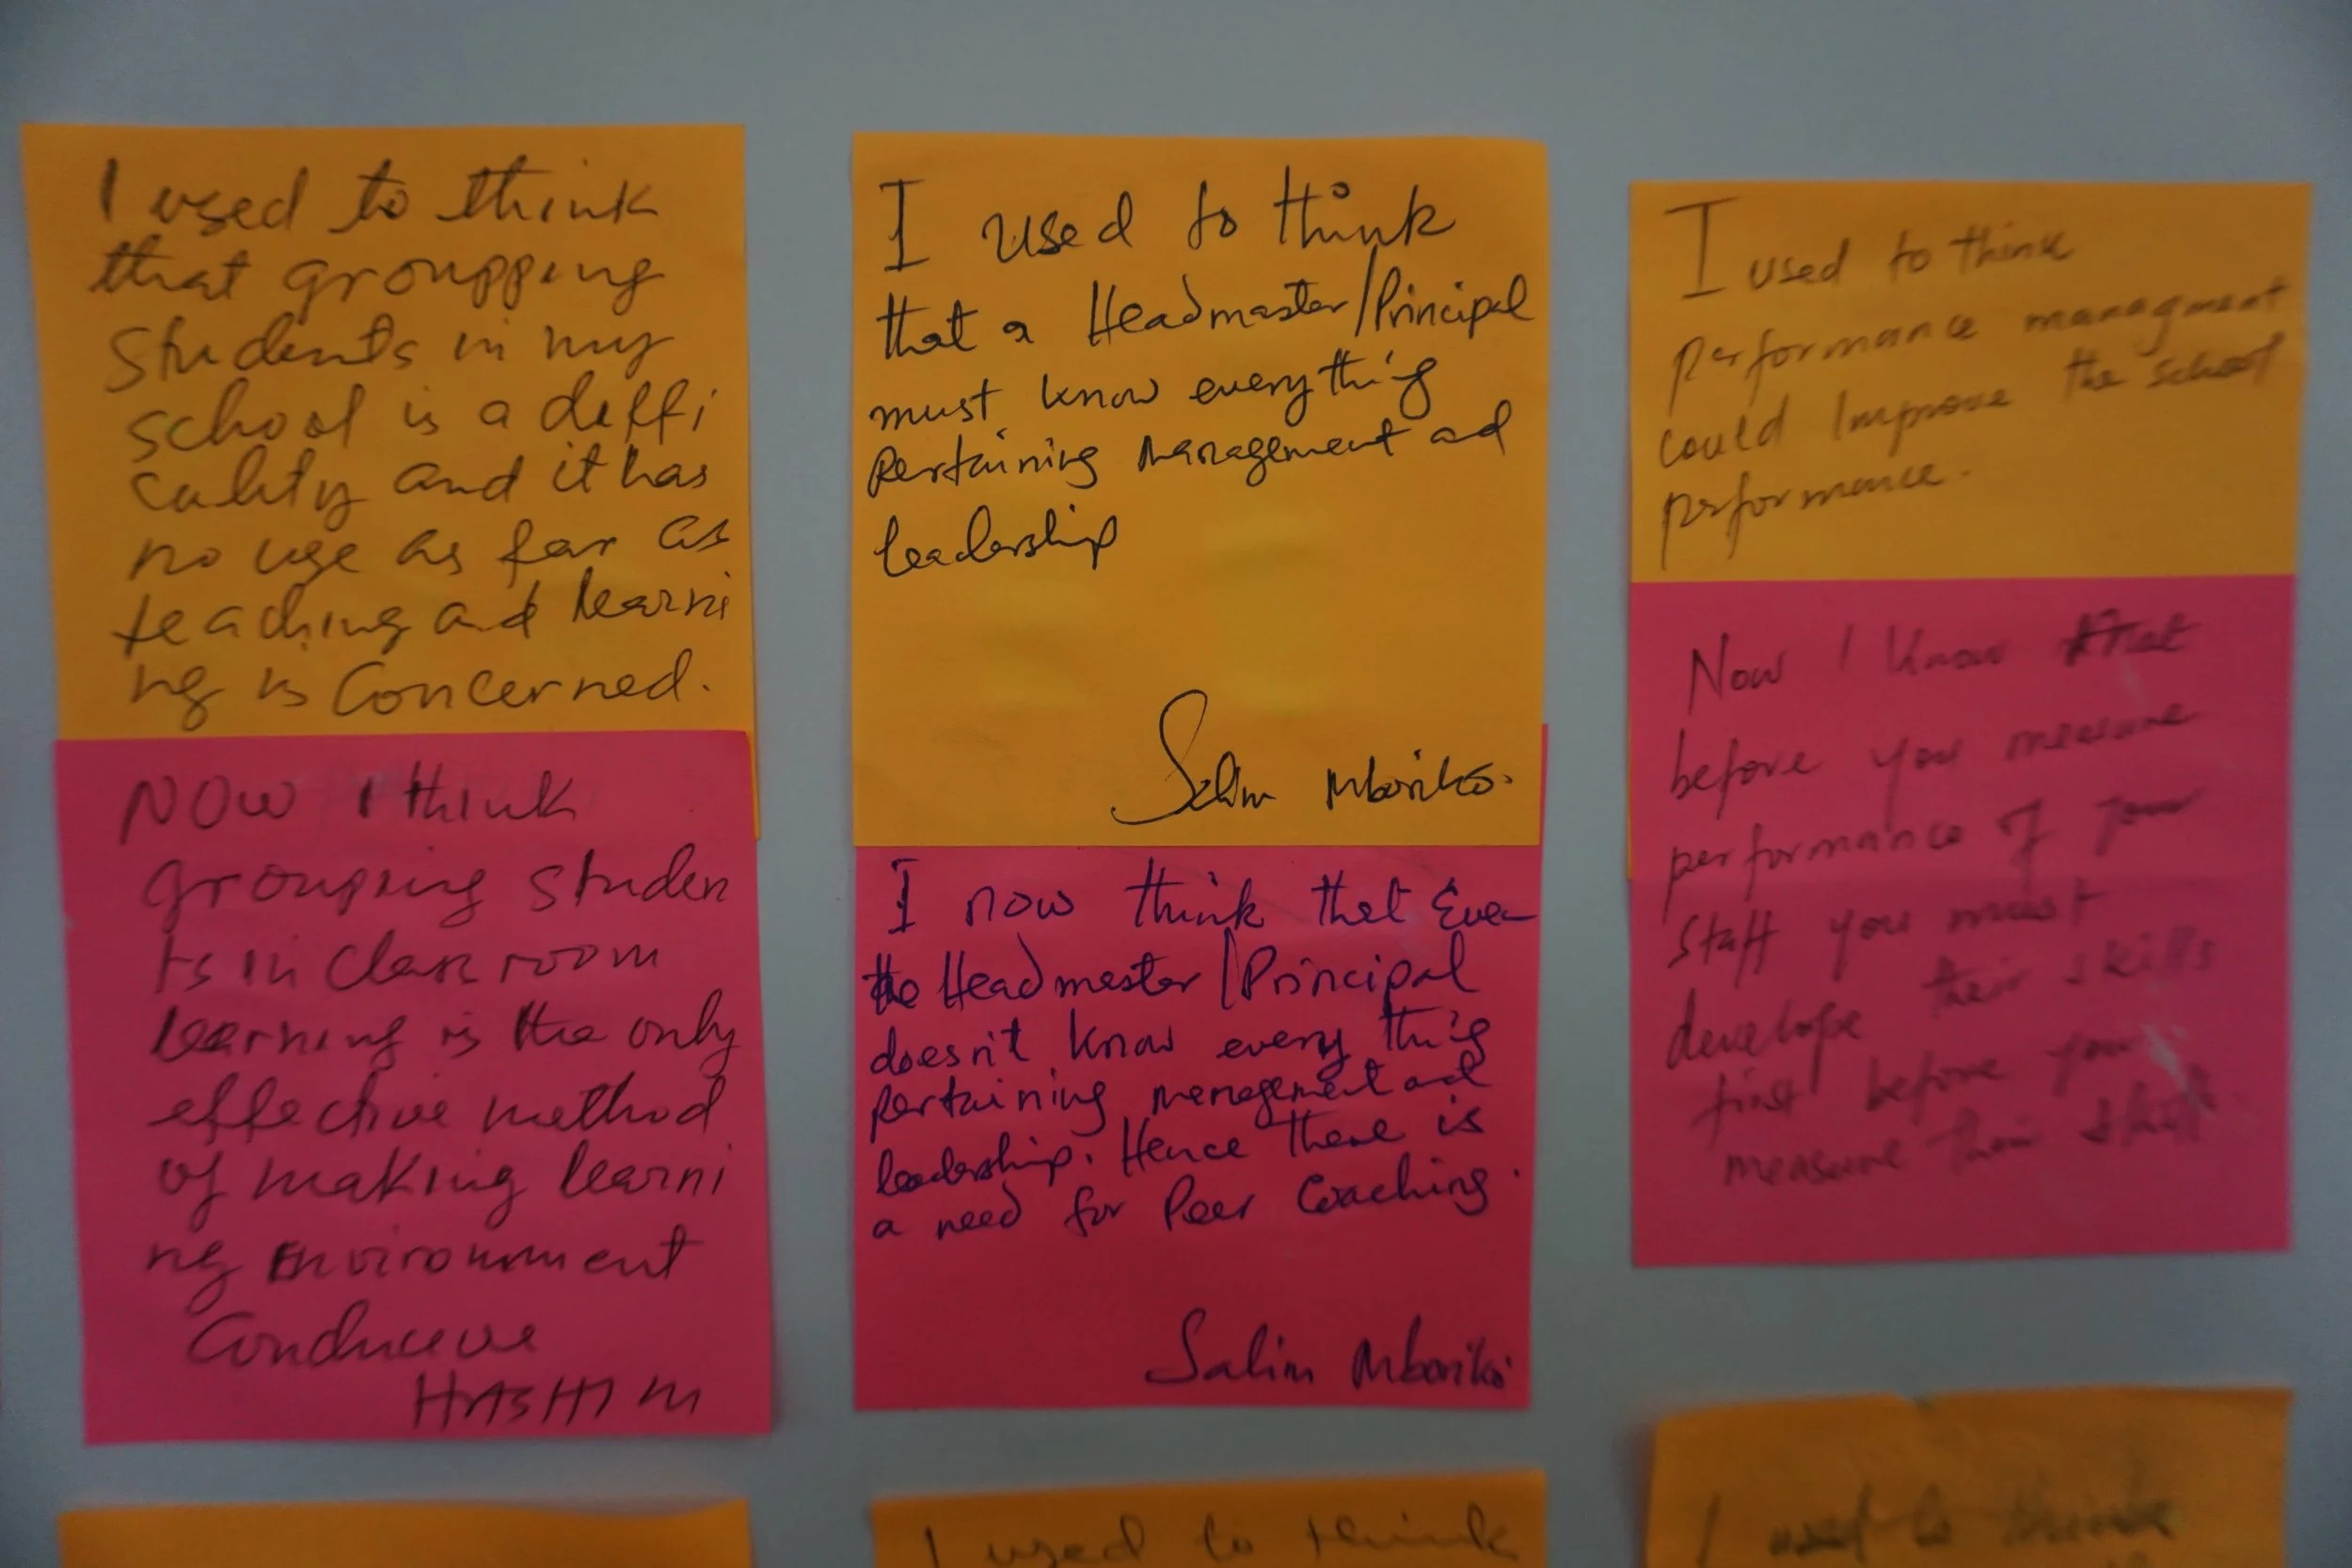 I used to think
that groupping
Students in my
school is a deffi
culity and it has
no use as far as
teaching and learni
ng is Concerned.
NOW I think
grouping studen
ts in classroom
learning is the only
effective method
of making learni
ng Environment
Conducive
HASHIM
I used to think
that a Headmaster/Principal
must know everything
Pertaining Management ad
leadership
Salim Mboriko.
I now think that Even
the Headmaster/Principal
doesn't know every thing
pertaining management and
leadership. Hence there is
a need for Peer Coaching.
Salim Mboriko
I used to think
performance managment
could Improve the school
performance.
Now I know that
before you measure
performance of your
staff you must
develope their skills
first before you
measure their
I used to think
I used to think